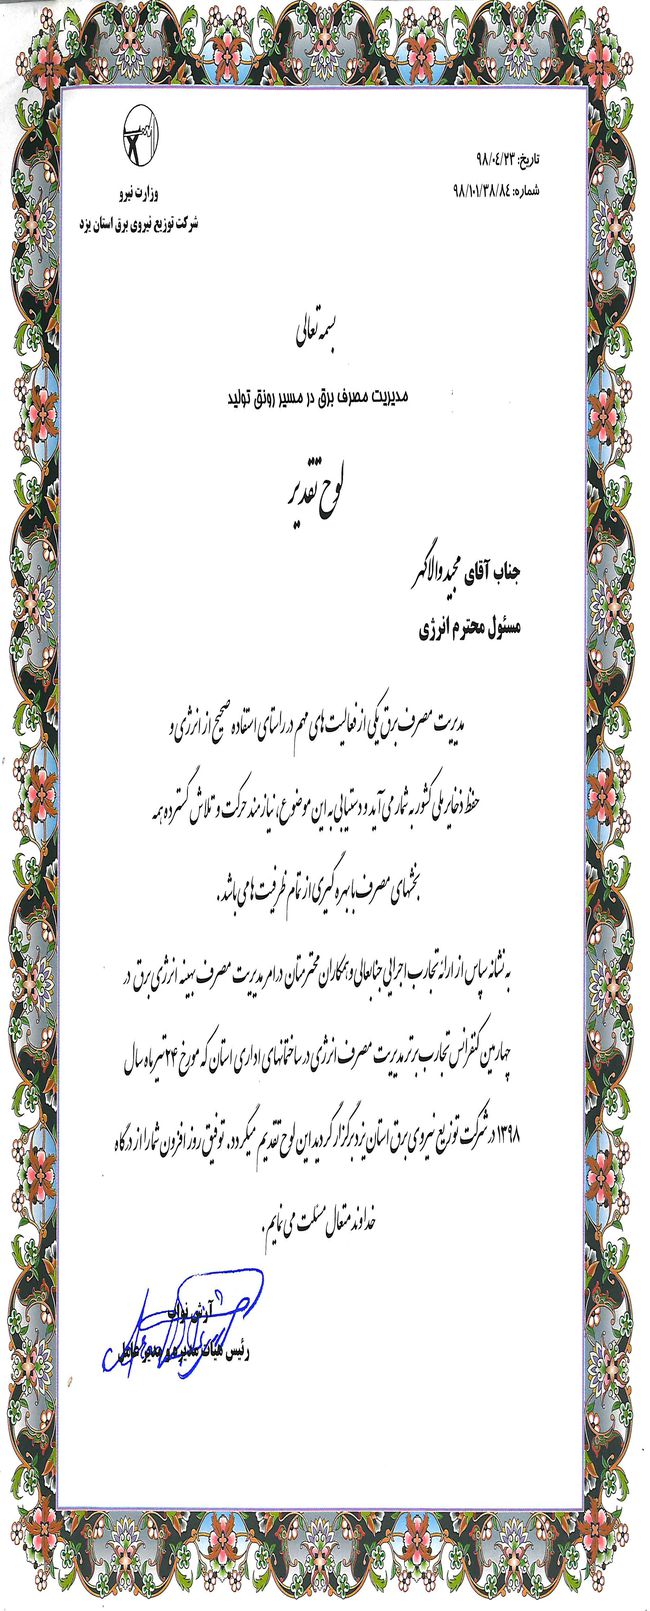 تاریخ: ۹۸/۰٤/۲۳
شماره: ۹۸/۱۰۱/۳۸/۸٤
وزارت نیرو
شرکت توزیع نیروی برق استان یزد
بسمه تعالی
مدیریت مصرف برق در مسیر رونق تولید
لوح تقدیر
جناب آقای مجید والاگهر
مسئول محترم انرژی
مدیریت مصرف برق یکی از فعالیت های مهم در راستای استفاده صحیح از انرژی و
حفظ ذخایر ملی کشور به شمار می آید و دستیابی به این موضوع، نیازمند حرکت و تلاش گسترده همه
بخشهای مصرف با بهره گیری از تمام ظرفیت ها می باشد .
به نشانه سپاس از ارائه تجارب اجرایی جنابعالی و همکاران محترمتان در امر مدیریت مصرف بهینه انرژی برق در
چهارمین کنفرانس تجارب برتر مدیریت مصرف انرژی در ساختمانهای اداری استان که مورخ ۲۴ تیر ماه سال
۱۳۹۸ در شرکت توزیع نیروی برق استان یزد برگزار گردید این لوح تقدیم میگردد. توفیق روز افزون شما را از درگاه
خداوند متعال مسئلت می نمایم .
آرش نواب
رئیس هیات مدیره و مدیر عامل